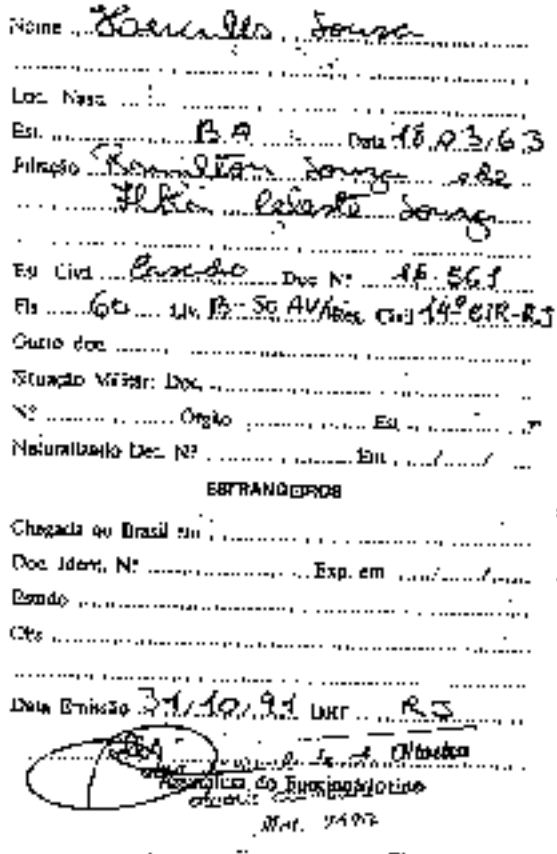 Nome Hercules Souza
Loc. Nasc.
Est. BA Data 18,03/63
Filiação Hamilton Souza e de
Ilka Celeste Souza
Est. Civil Casado Doc Nº 16.561
Fls 60 Liv. B-50 AV/Reg. Civil 14ª CIR-RJ
Outro doc.
Situação Militar: Doc.
Nº Órgão Est.
Naturalizado Dec. Nº Em / /
ESTRANGEIROS
Chegada ao Brasil em
Doc. Ident. Nº Exp. em / /
Estado
Obs
Data Emissão 31/10/91 DRT RJ
Oliveira
Assinatura do Funcionário
Mat.